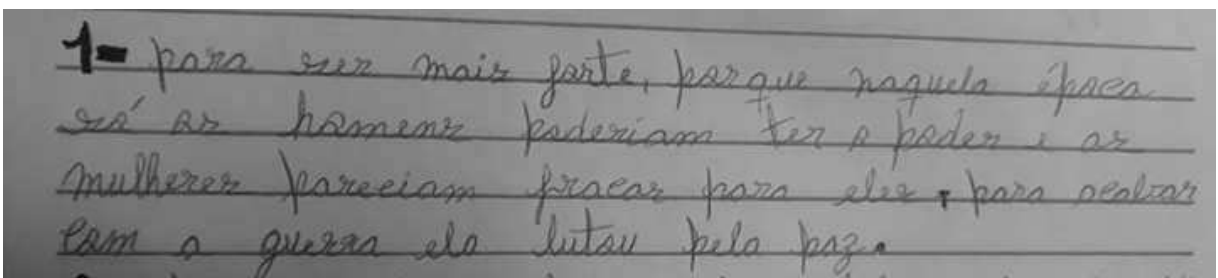 1- para ser mais forte, porque naquela época
só os homens poderiam ter o poder e as
mulheres pareciam fracas para eles, para acabar
com a guerra ela lutou pela paz.